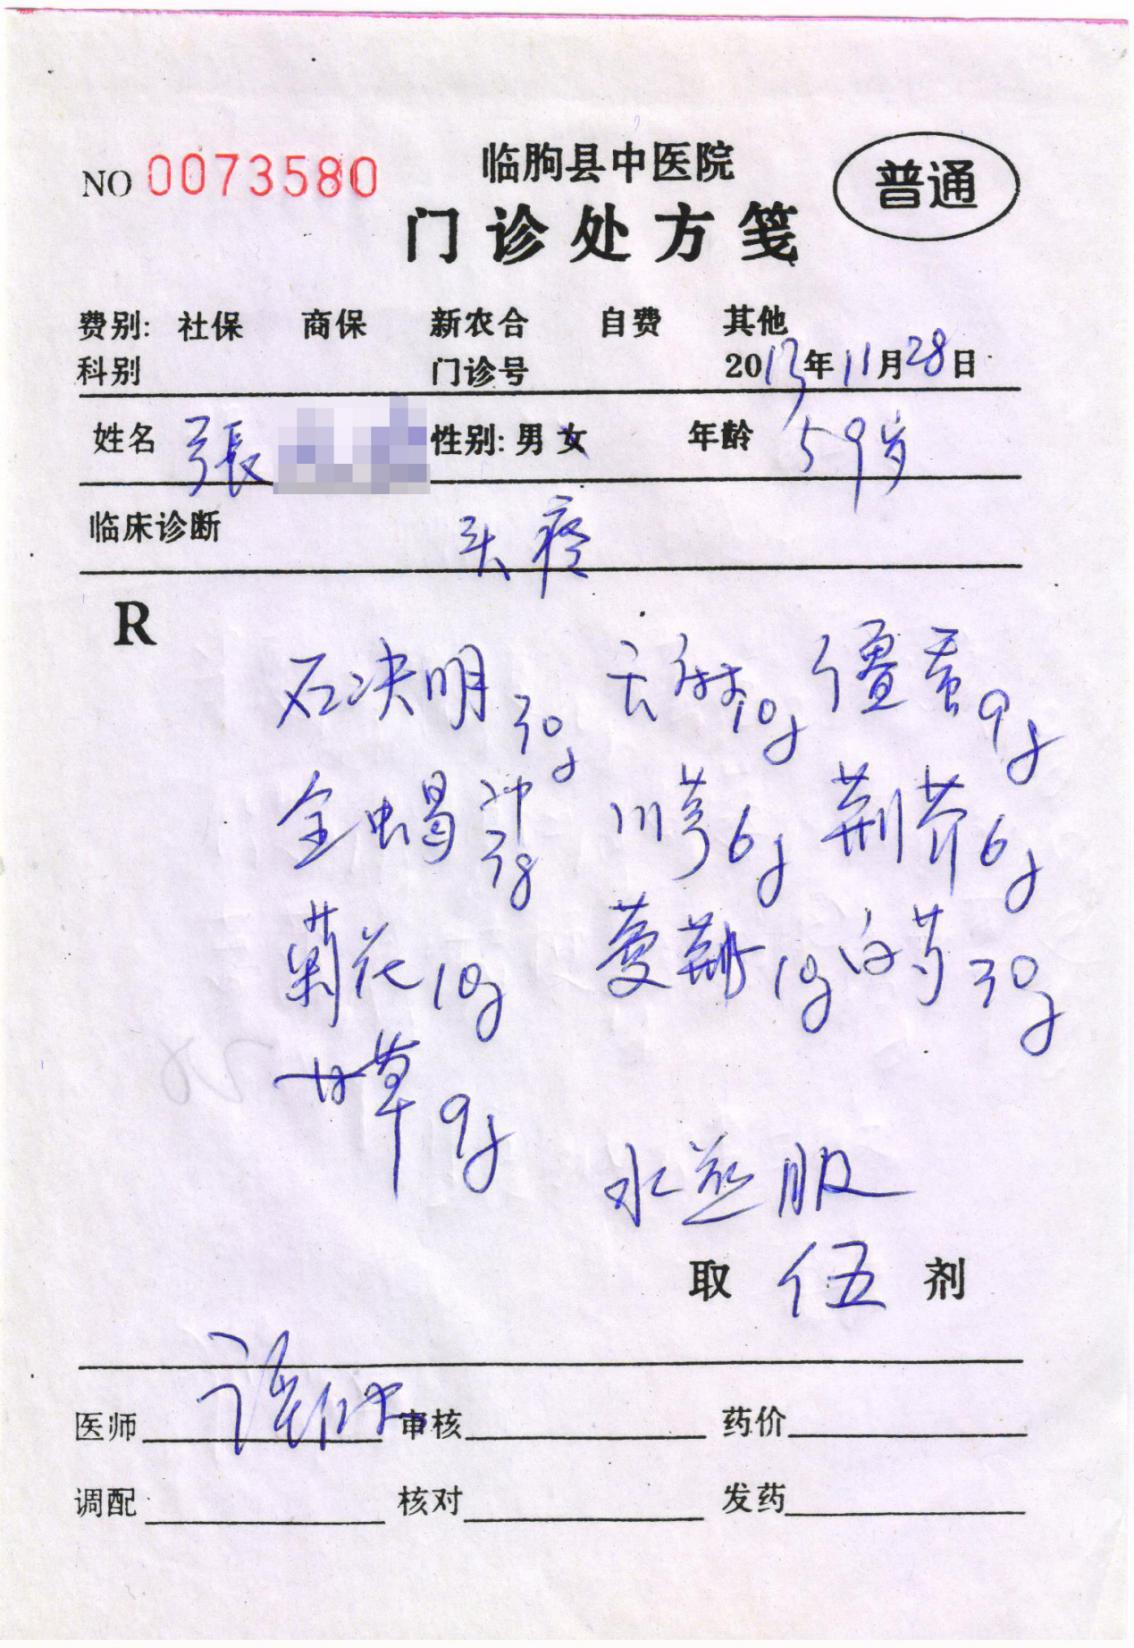 临朐县中医院
NO 0073580
普通
门诊处方笺
费别: 社保 商保 新农合 自费 其他
科别 门诊号 2013年11月28日
姓名 張 性别: 男 女 年龄 59岁
临床诊断 头疼
R
石决明30g 天麻10g 僵蚕9g
全蝎冲3g 川芎6g 荆芥6g
菊花10g 蔓荆10g 白芍30g
甘草9g
水煎服
取 伍 剂
医师 审核 药价
调配 核对 发药